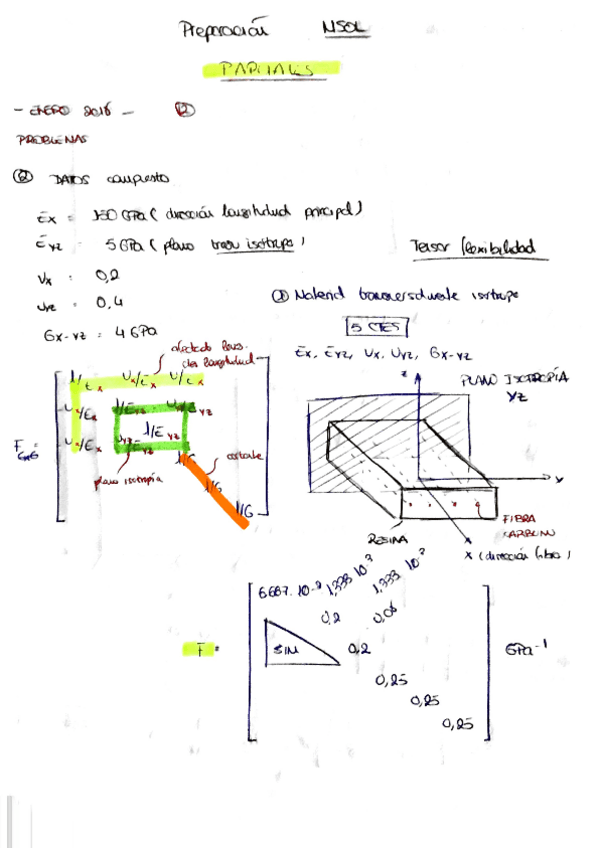 Preparación MSOL
PARCIALES
- ENERO 2016 -
PROBLEMAS
② DATOS compuesto
Ex = 150 GPa (dirección longitudinal principal)
Eyz = 5 GPa (plano trans isótropo)
νx = 0,2
νyz = 0,4
Gx-yz = 4 GPa
Tensor flexibilidad
① Material transversalmente isótropo
5 CTES
Ex, Eyz, νx, νyz, Gx-yz
afectado
longitudinal
1/Ex νx/Ex νx/Ex
νx/Ex 1/Eyz νyz/Eyz
νx/Ex νyz/Eyz 1/Eyz
F6x6 =
plano isotropía
1/G
cortante
1/G
1/G
z
PLANO ISOTROPÍA
YZ
y
FIBRA
CARBONO
RESINA
x
x (dirección fibra)
6667·10⁻³ 1,333·10⁻³ 1,333·10⁻³
0,2 0,08
F =
SIM
0,2
GPa⁻¹
0,25
0,25
0,25